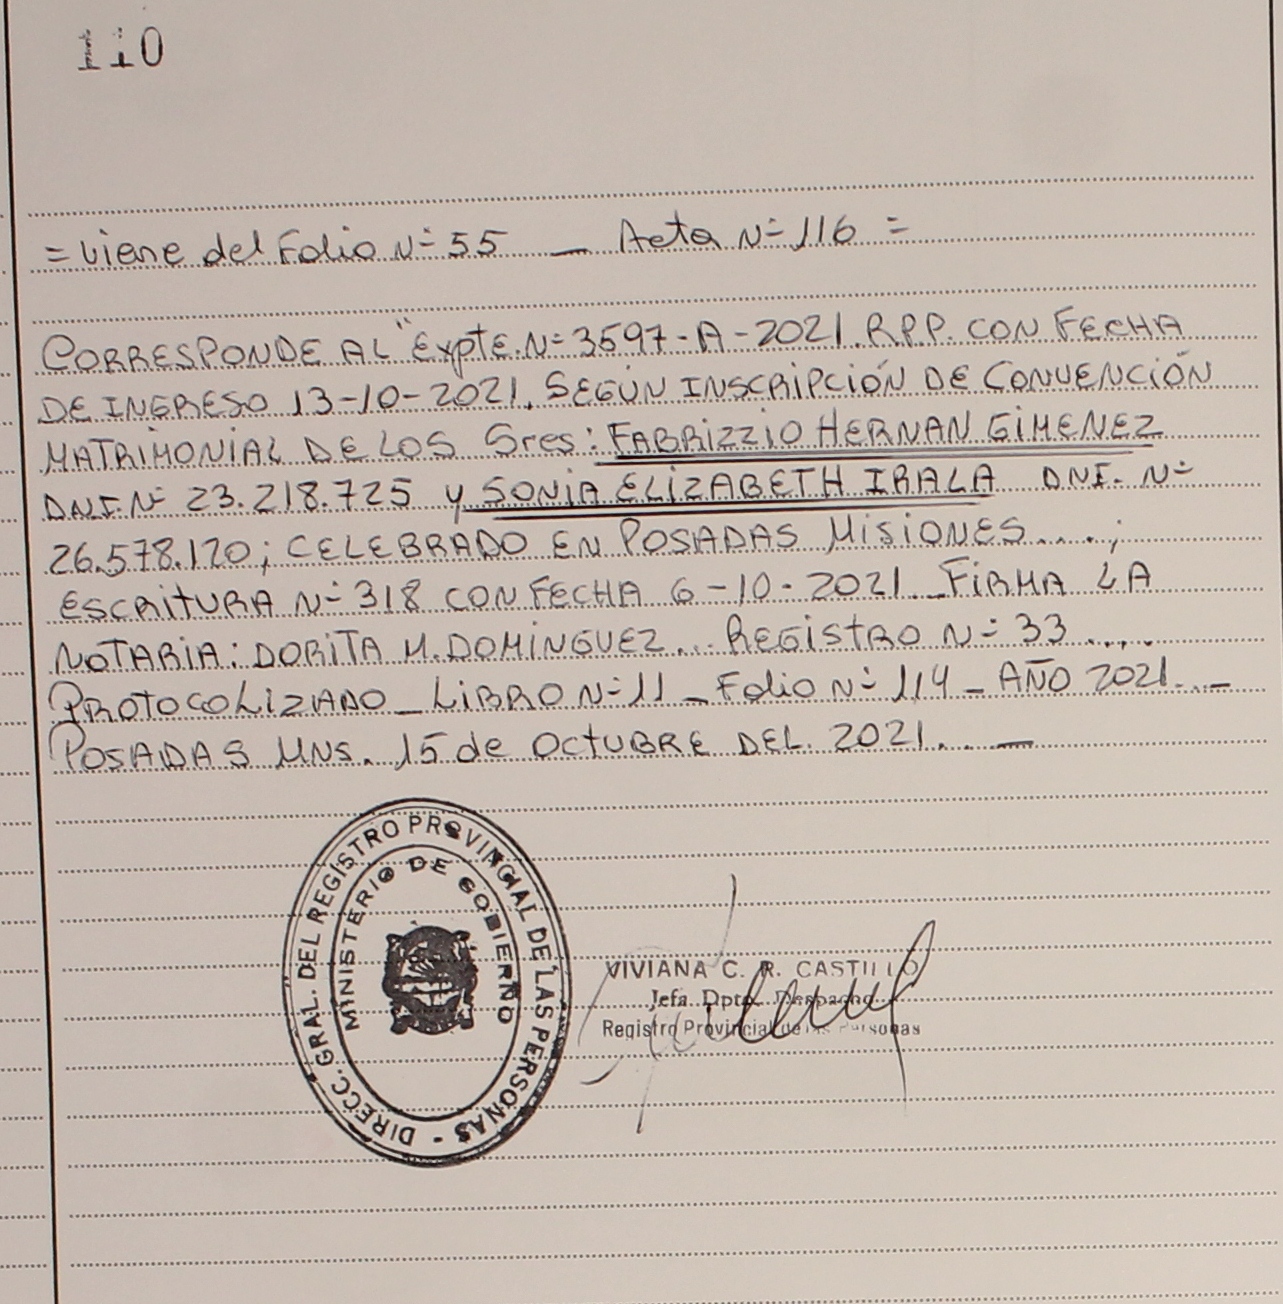 110
= Viene del Folio N° 55 _ Acta N° 116 =
CORRESPONDE AL "Expte. N° 3597-A-2021. R.P.P. CON FECHA
DE INGRESO 13-10-2021. SEGÚN INSCRIPCIÓN DE CONVENCIÓN
MATRIMONIAL DE LOS Sres: FABRIZZIO HERNAN GIMENEZ
DNI. N° 23.218.725 y SONIA ELIZABETH IRALA DNI. N°
26.578.120; CELEBRADO EN POSADAS MISIONES....;
ESCRITURA N° 318 CON FECHA 6-10-2021._FIRMA LA
NOTARIA: DORITA M. DOMINGUEZ... REGISTRO N° 33.....
PROTOCOLIZADO _ LIBRO N° 11 _ Folio N° 114 _ AÑO 2021..._
POSADAS MNS. 15 de OCTUBRE DEL. 2021..._
DIRECC. GRAL. DEL REGISTRO PROVINCIAL DE LAS PERSONAS -
MINISTERIO DE GOBIERNO
VIVIANA C. R. CASTILLO
Jefa Dpto. Despacho
Registro Provincial de las Personas